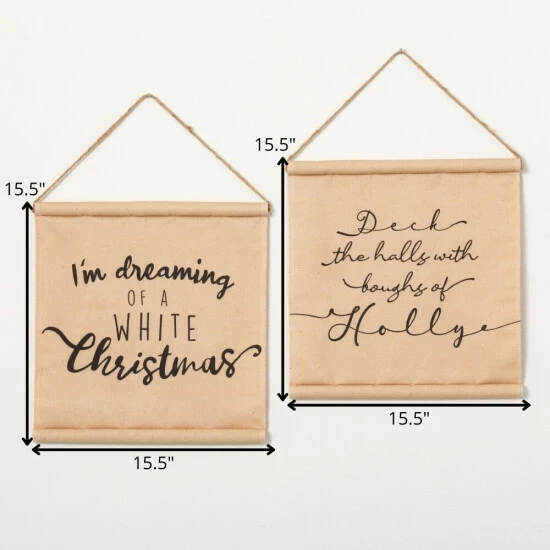 15.5"
I'm dreaming
OF A
WHITE
Christmas
15.5"
15.5"
Deck
the halls with
boughs of
Holly
15.5"